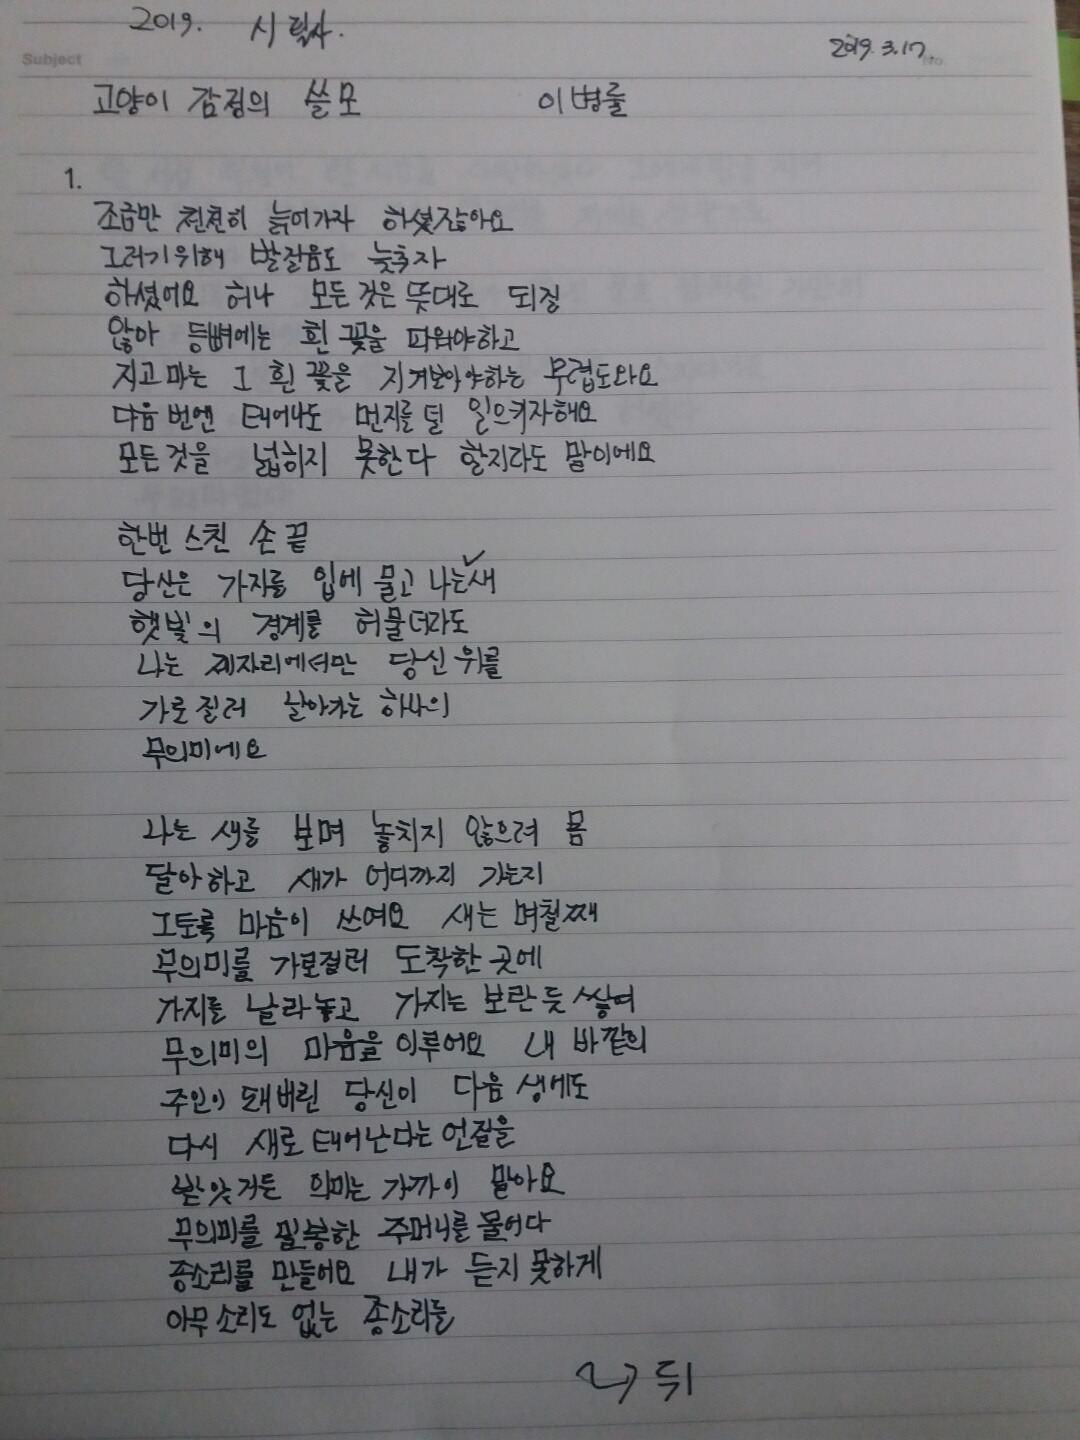 2019. 시 필사.
2019. 3. 17.
Subject
No.
고양이 감정의 쓸모 이병률
1.
조금만 천천히 늙어가자 하셨잖아요
그러기위해 발걸음도 늦추자
하셨어요 허나 모든 것은 뜻대로 되질
않아 등뼈에는 흰 꽃을 피워야하고
지고마는 그 흰 꽃을 지켜보아야하는 무렵도와요
다음번엔 태어나도 먼지를 덜 일으키자해요
모든것을 넓히지 못한다 할지라도 말이에요
한번 스친 손끝
당신은 가지를 입에 물고 나는 새
햇빛의 경계를 허물더라도
나는 제자리에서만 당신 위를
가로질러 날아가는 하나의
무의미에요
나는 새를 보며 놓치지 않으려 몸
달아하고 새가 어디까지 가는지
그토록 마음이 쓰여요 새는 며칠째
무의미를 가로질러 도착한 곳에
가지를 날라놓고 가지는 보란듯 쌓여
무의미의 마을을 이루어요 내 바깥의
주인이 돼버린 당신이 다음 생에도
다시 새로 태어난다는 언질을
받았거든 의미는 가까이 말아요
무의미를 밀봉한 주머니를 물어다
종소리를 만들어요 내가 듣지 못하게
아무소리도 없는 종소리를
뒤